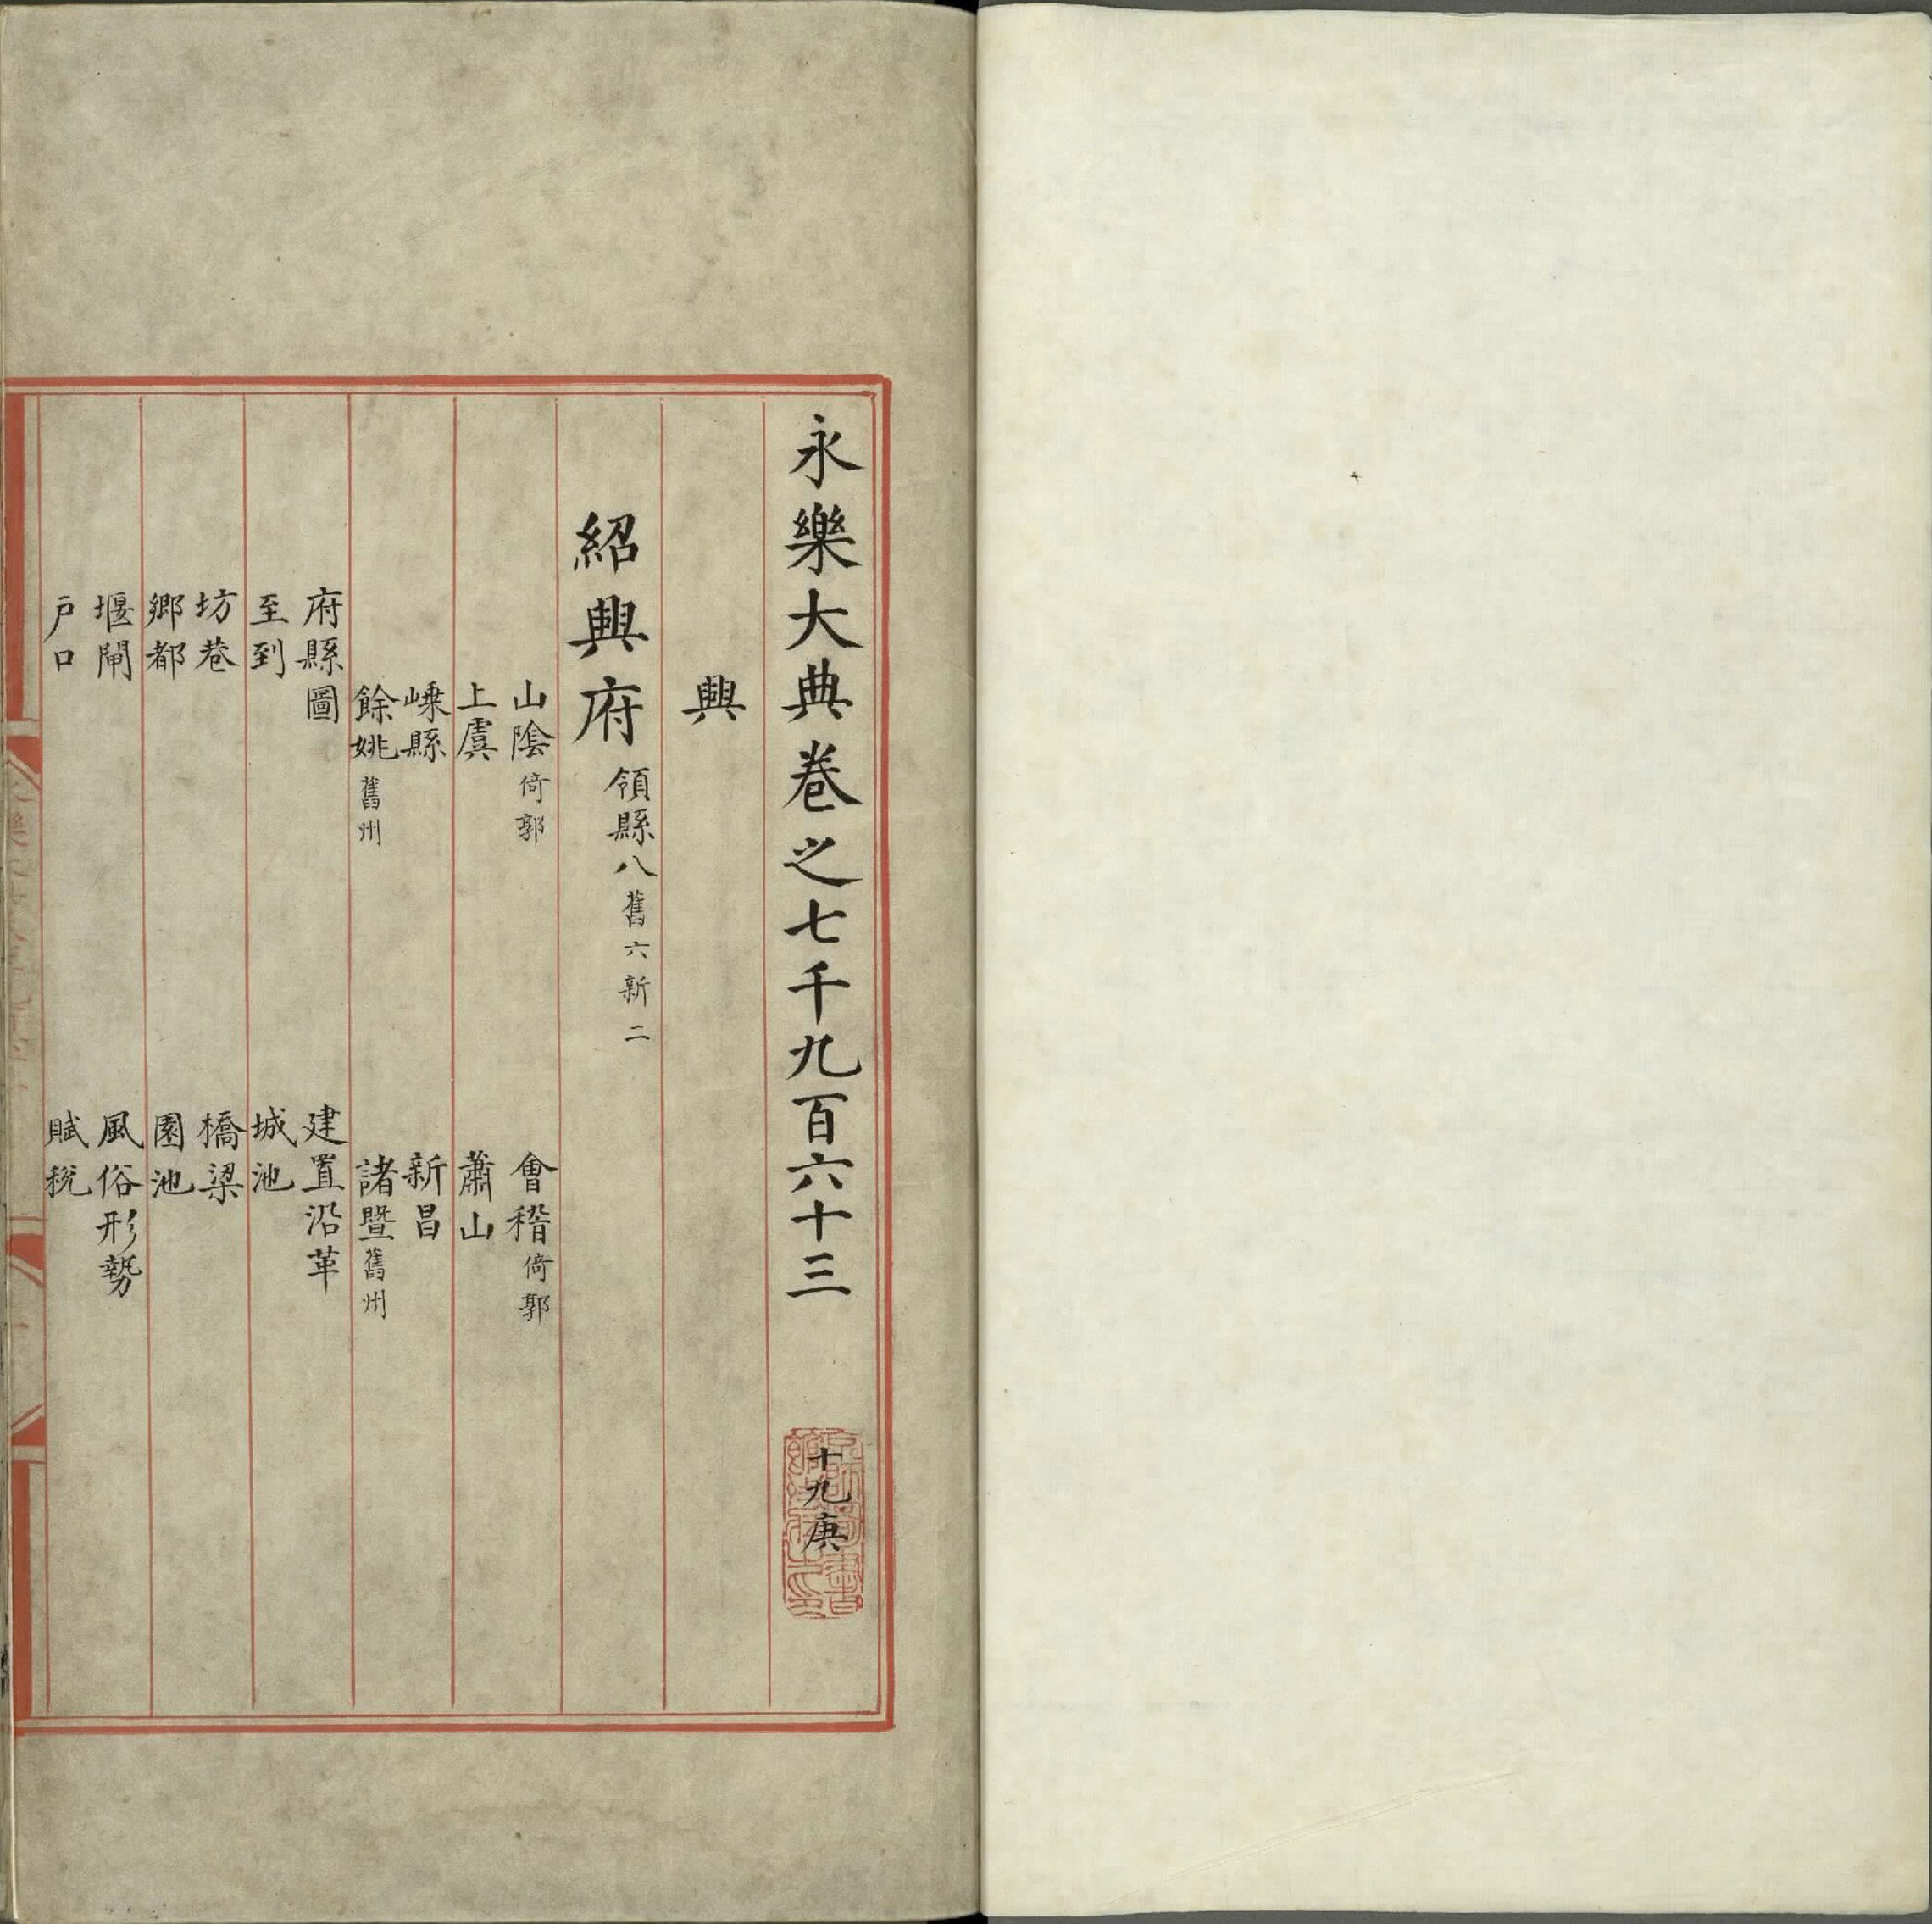 永樂大典卷之七千九百六十三 十九庚
興
紹興府 領縣八 舊六新二
山隂 倚郭 會稽 倚郭
上虞 蕭山
嵊縣 新昌
餘姚 舊州 諸暨 舊州
府縣圖 建置沿革
至到 城池
坊巷 橋梁
鄉都 園池
堰閘 風俗形勢
戶口 賦稅